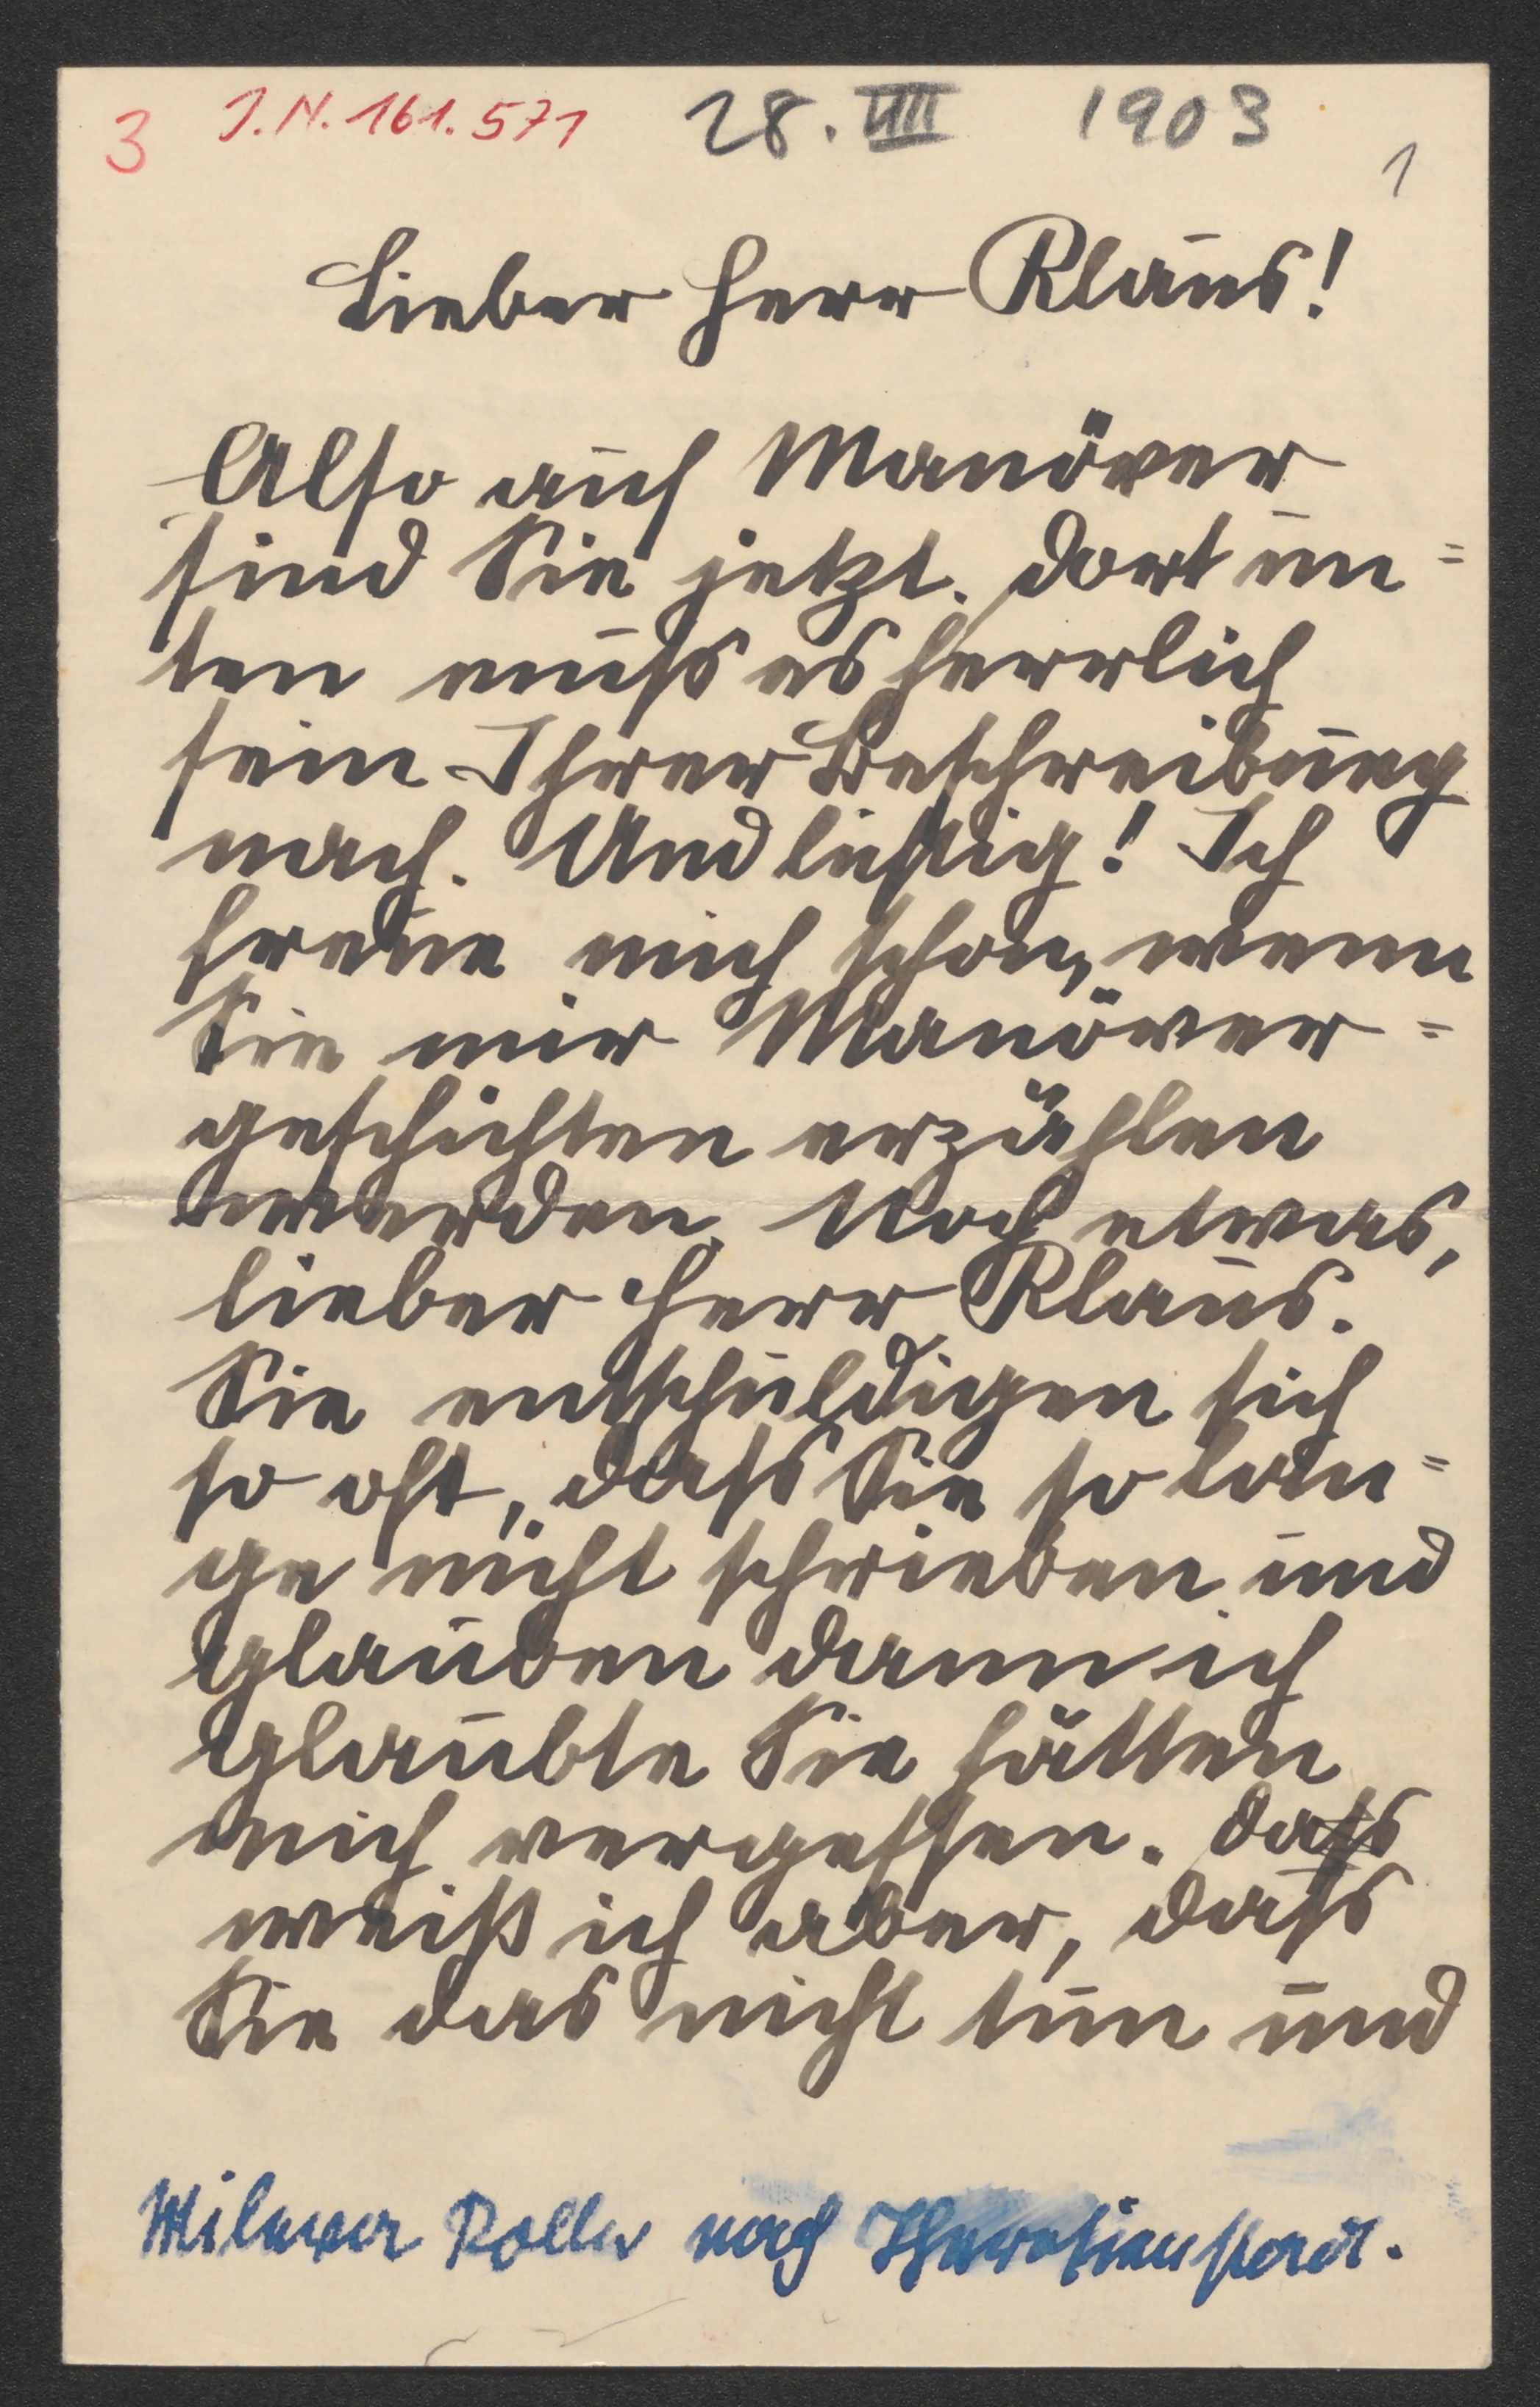 3 J.N. 161.571 28. VIII 1903
1
Lieber Herr Klaus!
Also auf Manöver
sind Sie jetzt. Dort un=
ten muss es herrlich
sein Ihrer Beschreibung
nach. Und lustig! Ich
freue mich schon, wenn
Sie mir Manöver=
geschichten erzählen
werden. Noch etwas,
lieber Herr Klaus.
Sie entschuldigen sich
so oft, dass Sie so lan=
ge nicht schrieben und
glauben dann ich
glaubte Sie hätten
mich vergessen. Dass
weiß ich aber, dass
Sie das nicht tun und
Mileva Roller nach Theresienstadt.